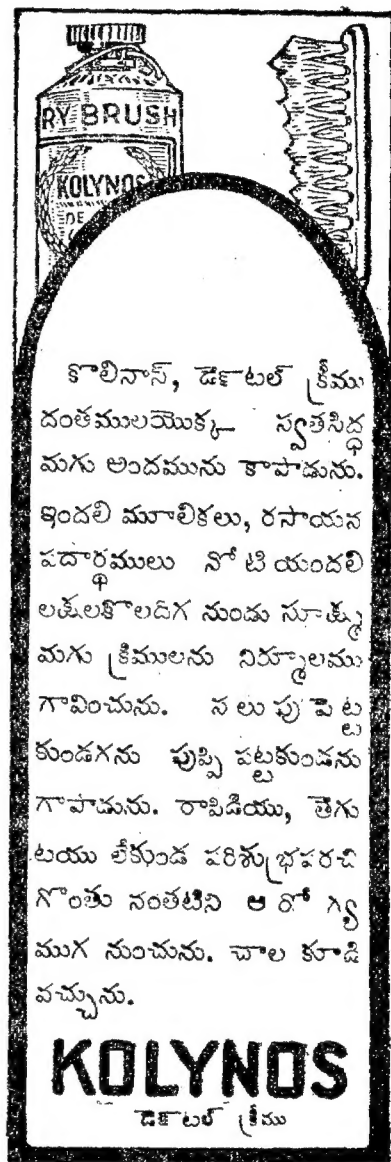 RY BRUSH
KOLYNOS
DE
కొలినాస్, డెంటల్ క్రీము
దంతములయొక్క స్వతసిద్ధ
మగు అందమును కాపాడును.
ఇందలి మూలికలు, రసాయన
పదార్థములు నోటి యందలి
లక్షలకొలదిగ నుండు సూక్ష్మ
మగు క్రిములను నిర్మూలము
గావించును. నలుపు పెట్ట
కుండగను పుప్పి పట్టకుండను
గాపాడును. రాపిడియు, తెగు
టయు లేకుండ పరిశుభ్రపరచి
గొంతు నంతటిని ఆరోగ్య
ముగ నుంచును. చాల కూడి
వచ్చును.
KOLYNOS
డెంటల్ క్రీము